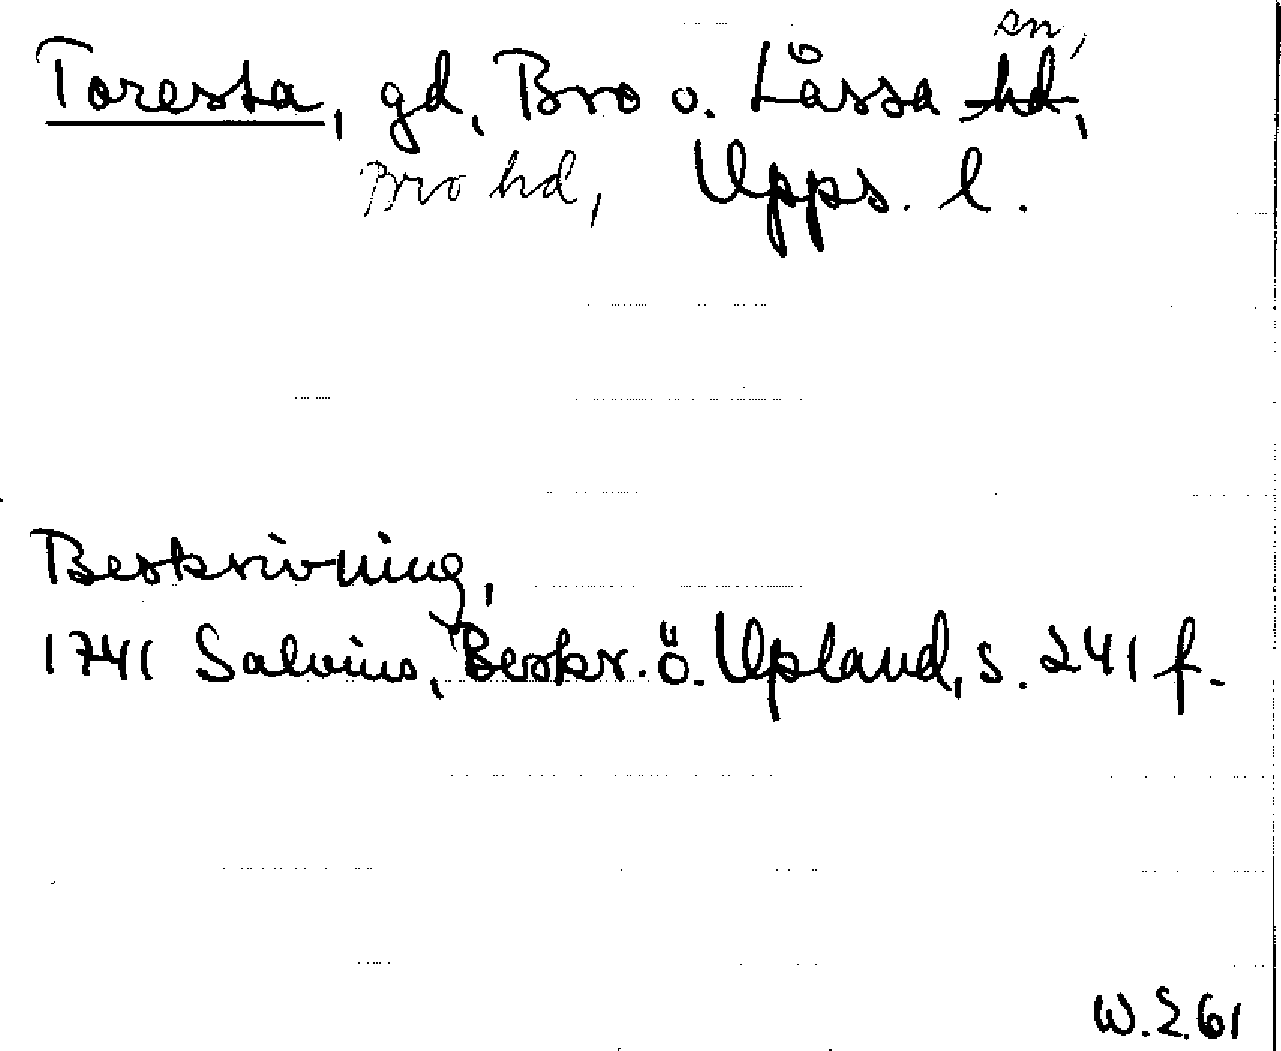 Toresta, gd, Bro o. Låssa hd, sn,
Bro hd, Upps. l.
Beskrivning,
1741 Salvius, Beskr. ö. Upland, s. 241 f.
W.S.61